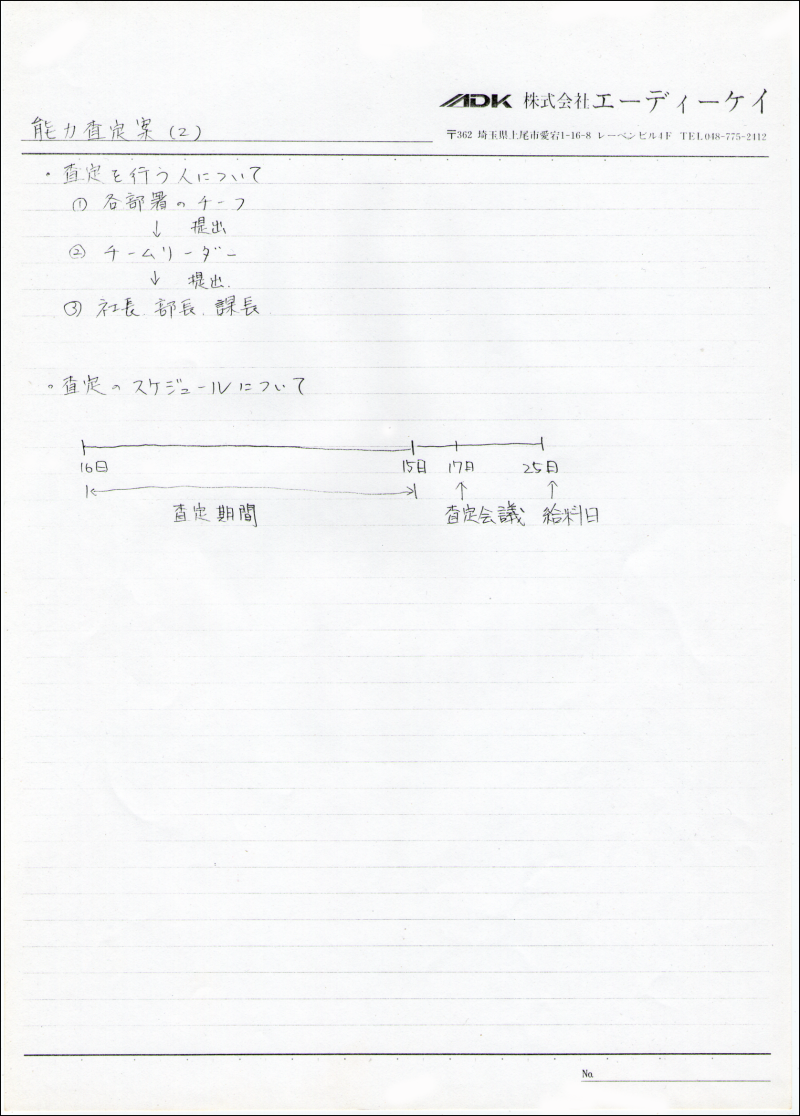 ADK 株式会社エーディーケイ
能力査定案(2)
〒362 埼玉県上尾市愛宕1-16-8 レーベンビル4F TEL048-775-2112
・査定を行う人について
① 各部署のチーフ
↓ 提出
② チームリーダー
↓ 提出.
③ 社長、部長、課長
・査定のスケジュールについて
16日 15日 17日 25日
↑ ↑
査定期間 査定会議 給料日
No.